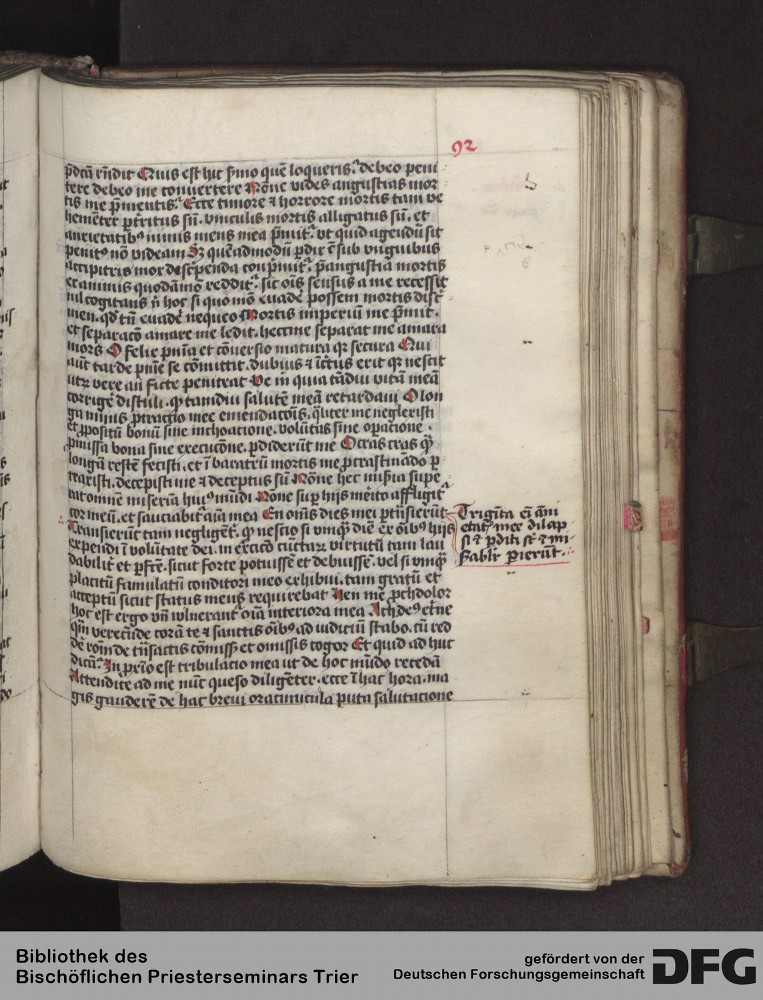 92
p̄dcā rn̄dit Quis est hic ẜmo quē loqueris. debeo peni
tere debeo me convertere Nōne vides angustias mor
tis me p̄mentis. Ecce timore ⁊ horrore mortis tam ve
hemēter ꝑt̄ritus sū. vinculis mortis alligatus sū. et
anxietatibꝰ nimis mens mea p̄mit᷑. vt quid agendū sit
penitꝰ nō videam Sꝫ quēadmodū ꝑdix ē sub vnguibus
accipitris mox discerpenda cōp̄mit᷑. p̄ angustia mortis
exanimis quodāmō reddit᷑. sic oīs sensus a me recessit
nil cogitans n̄ hoc si quo mō evadē possem mortis discͥ
men. qd̓ tn̄ evadē nequeo Mortis imperiū me p̄mit.
et separacō amare me ledit. heccine separat me amara
mors O felix pn̄ia et cōversio matura qꝛ secura Qui
aūt tarde pnīe se cōmittit. dubius ⁊ īc̄tus erit qꝛ nescit
utꝝ vere an ficte peniteat Ve m̄ quia tādiu vitā meā
corrige distuli. ꝙ tamdiu salutē meā retardavi O lon
ga nimis ꝓtractio mee emendacōis. qualiter me neglexisti
et ꝓpositū bonū sine inchoatione. volūtas sine oꝑacione.
ꝓmissa bona sine execucōne. ꝑdiderūt me O cras cras qͣm
longā restē fecisti. et ī baratrū mortis me ꝓcrastinādo ꝑ
traxisti. decepisti me ⁊ deceptus sū Nōne hec mis̄ia supe
rat omnē miseriā huiꝰ mūdi Nōne suꝑ hijs merito affligit᷑
cor meū. et sauciabit᷑ aīa mea En om̄s dies mei pt̄nsierūt
Transierūt tam negligent᷑. ꝙ nescio si vmqͣ diē ex oībꝰ hijs
expendi ī volūtate dei. in exercicō cūctaꝝ virtutū tam lau
dabilit᷑ et ꝑfc̄e. sicut forte potuissē et debuissē. vel si vmqͣ
placitū famulatū conditori meo exhibui. tam gratū et
acceptū sicut status meus requirebat Heu me ꝓchdolor
hoc est ergo vn̄ vulnerant᷑ oīa interiora mea Ach deꝰ et̄ne
qͣm verecūde corā te ⁊ sanctis oībꝰ ad iudiciū stabo. cū red
dē rōnem de
cogor Et quid ad huc
dicā. In ꝓxīo est tribulacio mea ut de hoc mūdo recedā
Attendite ad me nūc queso diligēter. ecce ī hac hora. ma
gis gauderē de hac brevi oratiuncula puta salutacione
Triginta ei āni
etat᷑ mee dilap
si ⁊ ꝑditi st̄ ⁊ mi
sabilr̄ perierūt.
Bibliothek des
Bischöflichen Priesterseminars Trier
gefördert von der
Deutschen Forschungsgemeinschaft
DFG